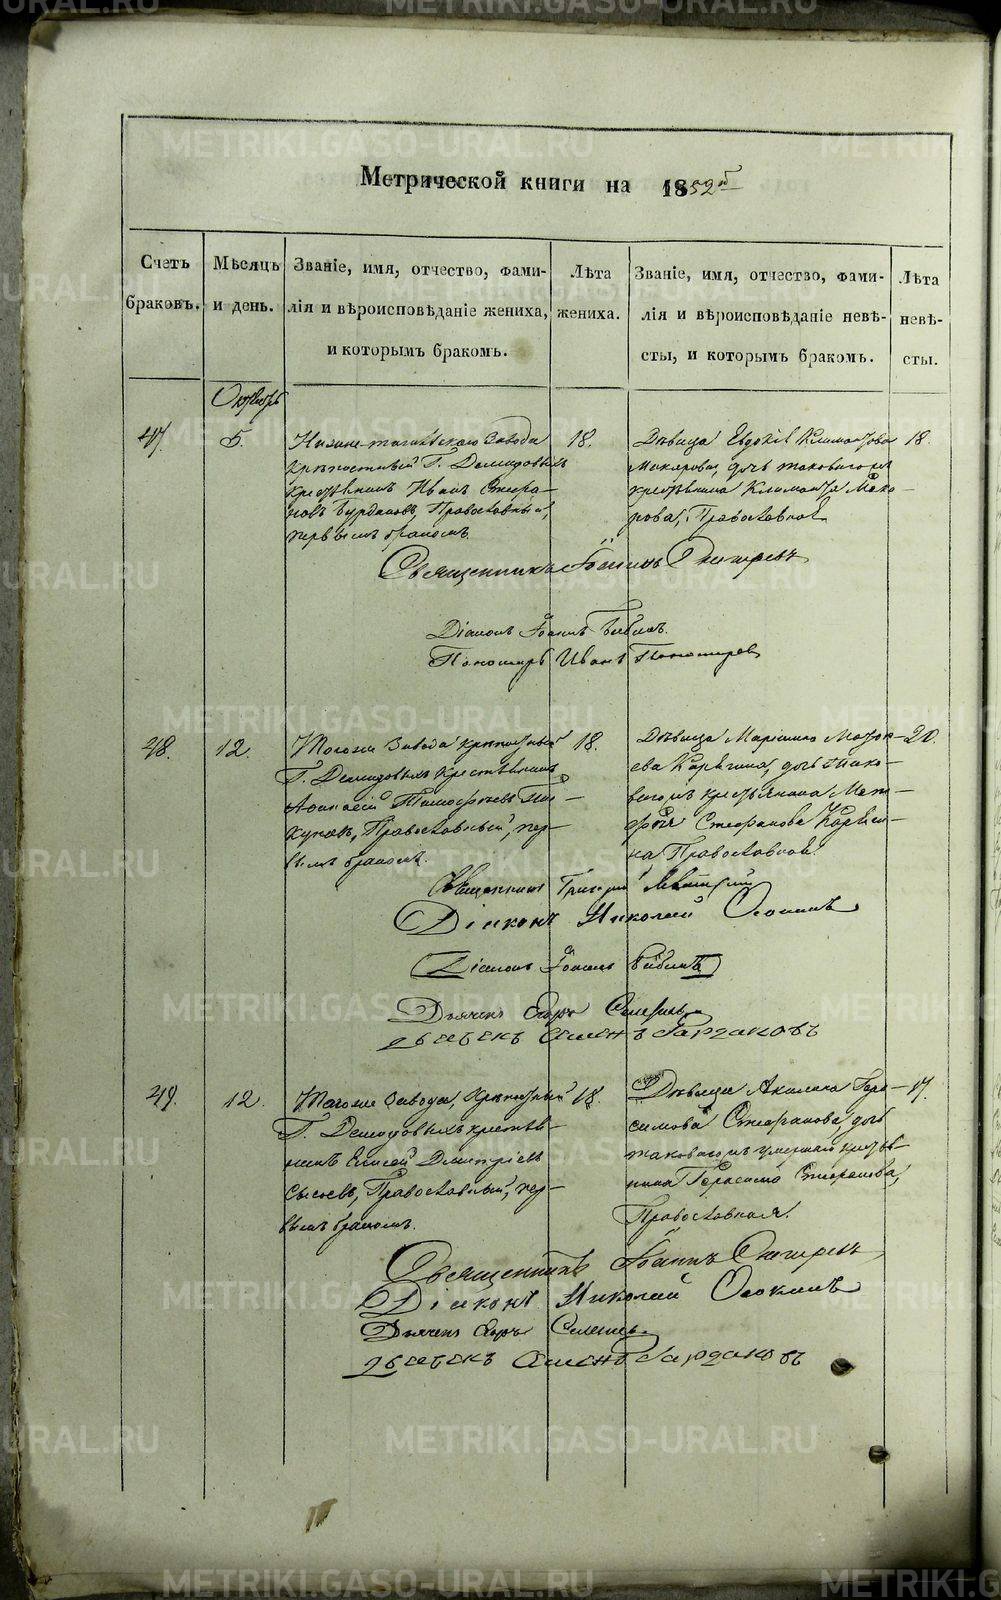 METRIKI.GASO-URAL.RU
Метрической книги на 1852й
Счетъ браковъ.
Мѣсяцъ и день.
Званіе, имя, отчество, фами-
лія и вѣроисповѣданіе жениха,
и которымъ бракомъ.
Лѣта жениха.
Званіе, имя, отчество, фами-
лія и вѣроисповѣданіе невѣ-
сты, и которымъ бракомъ.
Лѣта невѣ-
сты.
Октябрь
47.
5.
Нижне-тагильскаго Завода
Крѣпостный Г. Демидовыхъ
крестьянинъ Иванъ Стефа-
новъ Бурдаковъ, Православный,
первымъ бракомъ.
18.
Дѣвица Евдокія Климантова
Макарова, дочь таковагожъ
крестьянина Климантя Мака-
рова, Православная.
18.
Священникъ Іоаннъ
Діаконъ Іоаннъ Бибинъ.
Пономарь Иванъ Пономаревъ
48.
12.
Тогоже Завода крѣпостный
Г. Демидовыхъ Крестьянинъ
Тимофеевъ
Православный, пер-
вымъ бракомъ.
18.
Дѣвица Маріанна Матфі-
ева Карягина, дочь тако-
вагожъ крестьянина Мат-
фея Стефанова Каряги-
на Православная.
20.
Священникъ Григорій
Діаконъ Николай Осокинъ
Діаконъ Іоаннъ Бибинъ
Дьячекъ Егоръ
Семенъ Бардаковъ
49.
12.
Тогоже Завода, Крѣпостный
Г. Демидовыхъ крестья-
нинъ Елисей Дмитріевъ
Сысоевъ, Православный, пер-
вымъ бракомъ.
18.
Дѣвица Акилина Гера-
симова Стефанова, дочь
таковагожъ умершаго крестья-
нина Герасима Стефанова,
Православная.
17.
Священникъ Іоаннъ
Діаконъ Николай Осокинъ
Дьячекъ Егоръ
Семенъ Бардаковъ